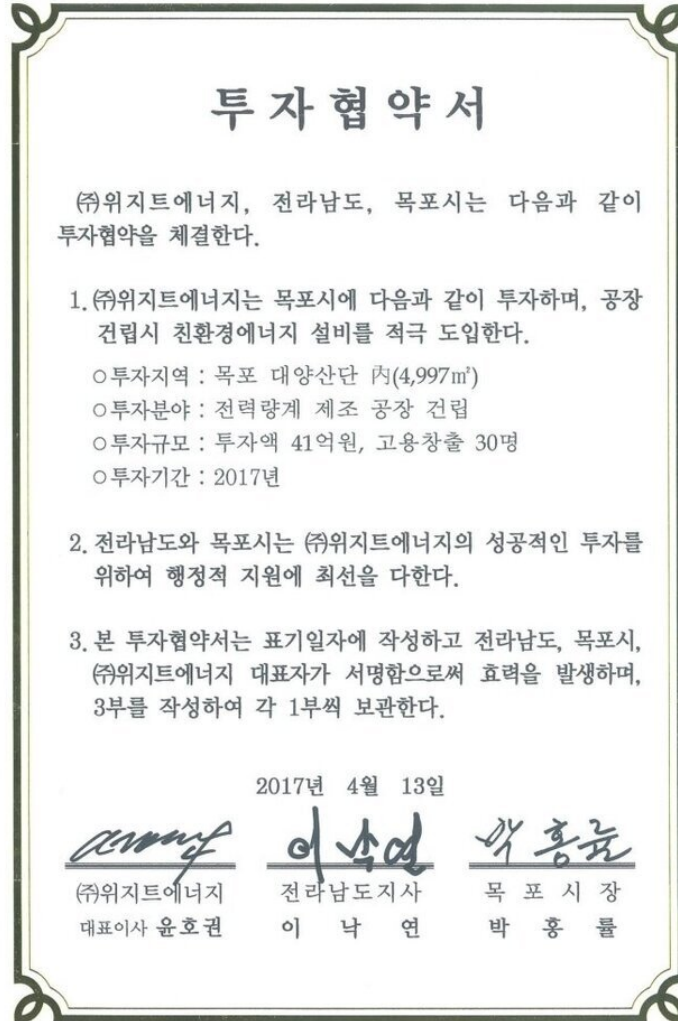 투자협약서
㈜위지트에너지, 전라남도, 목포시는 다음과 같이
투자협약을 체결한다.
1. ㈜위지트에너지는 목포시에 다음과 같이 투자하며, 공장
건립시 친환경에너지 설비를 적극 도입한다.
○투자지역 : 목포 대양산단 內(4,997㎡)
○투자분야 : 전력량계 제조 공장 건립
○투자규모 : 투자액 41억원, 고용창출 30명
○투자기간 : 2017년
2. 전라남도와 목포시는 ㈜위지트에너지의 성공적인 투자를
위하여 행정적 지원에 최선을 다한다.
3. 본 투자협약서는 표기일자에 작성하고 전라남도, 목포시,
㈜위지트에너지 대표자가 서명함으로써 효력을 발생하며,
3부를 작성하여 각 1부씩 보관한다.
2017년 4월 13일
이낙연 박홍률
㈜위지트에너지 전라남도지사 목 포 시 장
대표이사 윤호권 이 낙 연 박 홍 률